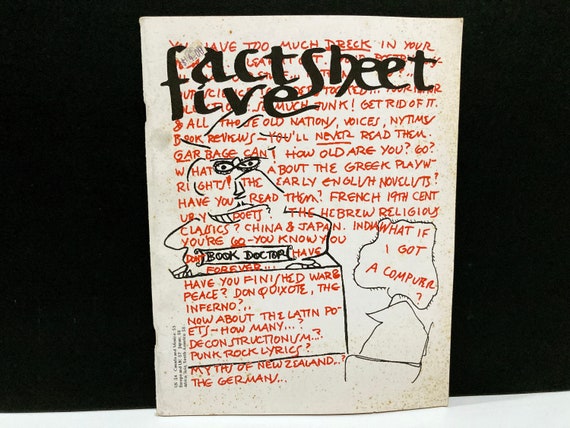 YOU HAVE TOO MUCH DRECK IN YOUR
factsheet
five
SO MUCH JUNK! GET RID OF IT.
& ALL THOSE OLD NATIONS, VOICES, NYTIMES
BOOK REVIEWS – YOU'LL NEVER READ THEM.
GARBAGE CAN! HOW OLD ARE YOU? 60?
WHAT ABOUT THE GREEK PLAYW-
RIGHTS? THE EARLY ENGLISH NOVELISTS?
HAVE YOU READ THEM? FRENCH 19TH CENT
URY POETS THE HEBREW RELIGIOUS
CLASSICS? CHINA & JAPAN. INDIA
YOU'RE 60 – YOU KNOW YOU
DON'T HAVE
BOOK DOCTOR
FOREVER...
HAVE YOU FINISHED WAR &
PEACE? DON QUIXOTE, THE
INFERNO?..
NOW ABOUT THE LATIN PO-
ETS – HOW MANY...?
DECONSTRUCTIONISM...?
PUNK ROCK LYRICS?
MYTHS OF NEW ZEALAND..?
THE GERMANS...
WHAT IF
I GOT
A COMPUTER
?